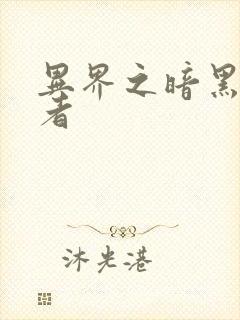 異界之暗黑
者
沐光港